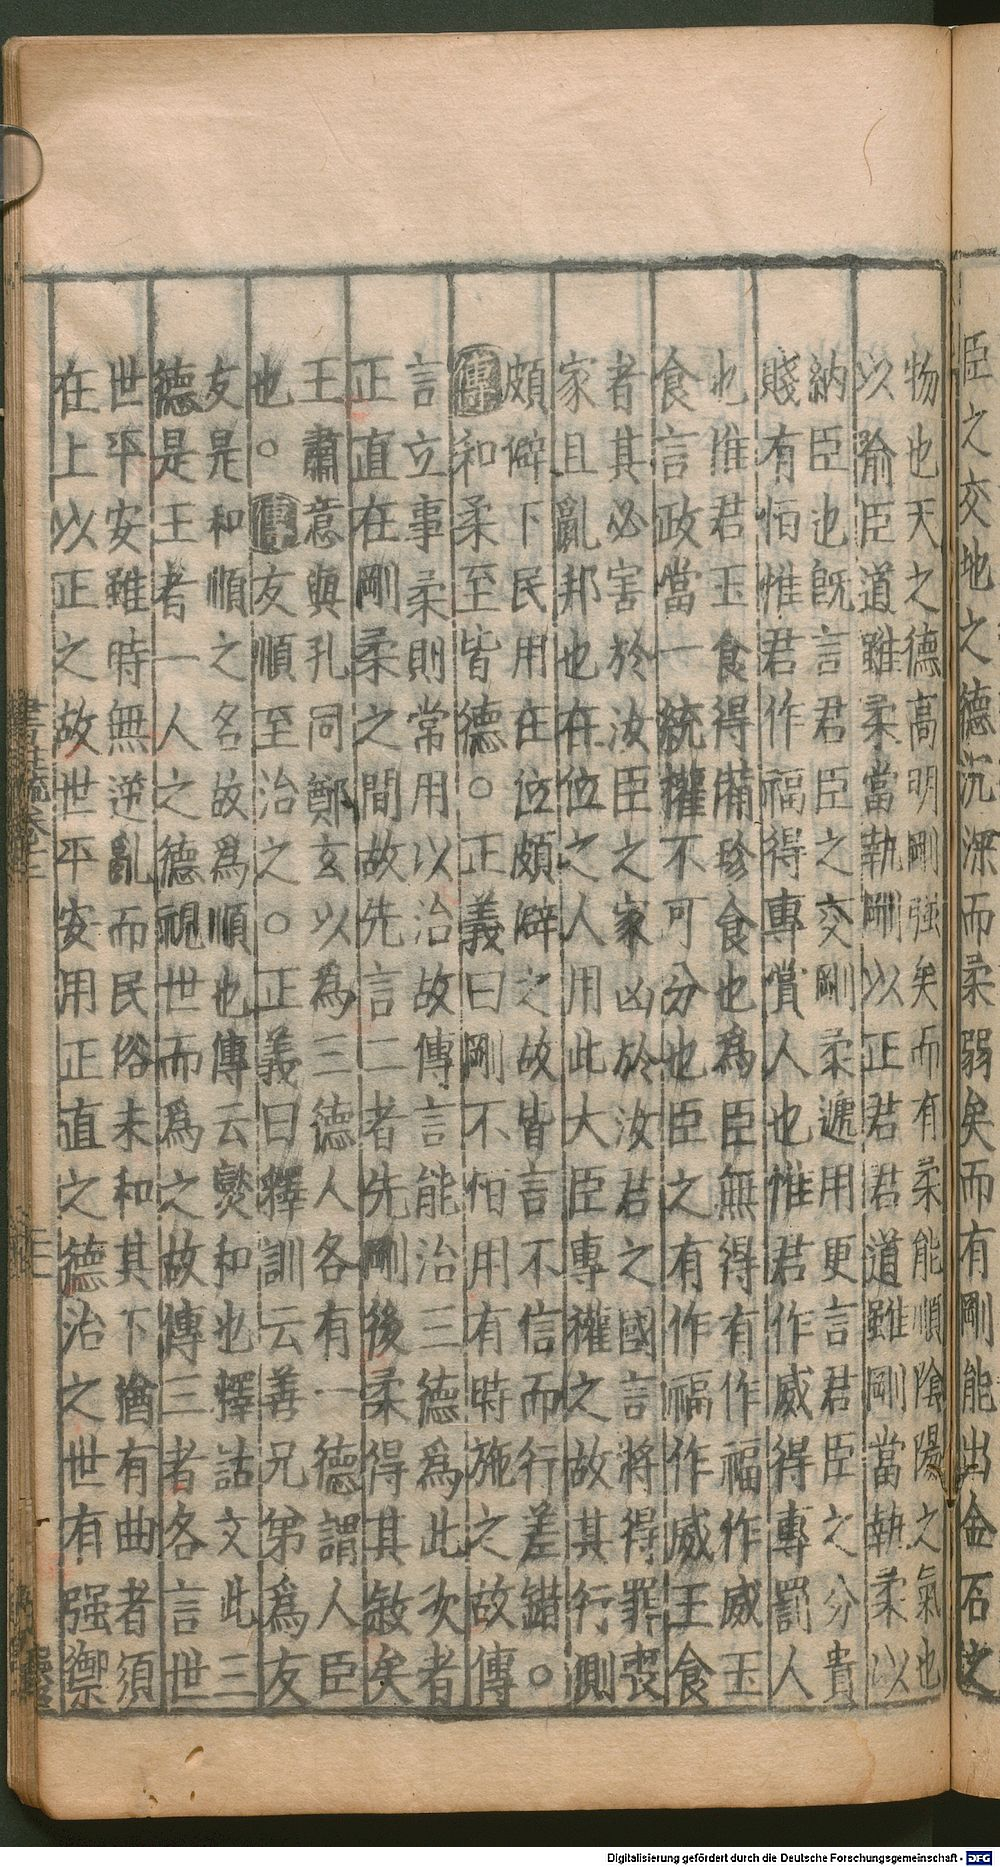 臣之交地之德沉深而柔弱矣而有剛能出金石之
物也天之德高明剛強矣而有柔能順陰陽之氣也
以喻臣道雖柔當執剛以正君君道雖剛當執柔以
納臣也旣言君臣之交剛柔遞用更言君臣之分貴
賤有恒惟君作福得專賞人也惟君作威得專罰人
也惟君玉食得備珍食也爲臣無得有作福作威玉
食言政當一統權不可分也臣之有作福作威王食
者其必害於汝臣之家凶於汝君之國言將得罪喪
家且亂邦也在位之人用此大臣專權之故其行側
頗僻下民用在位頗僻之故皆言不信而行差錯○
傳和柔至皆德○正義曰剛不恒用有時施之故傳
言立事柔則常用以治故傳言能治三德爲此次者
正直在剛柔之間故先言二者先剛後柔得其敘矣
王肅意與孔同鄭玄以爲三德人各有一德謂人臣
也○傳友順至治之○正義曰釋訓云善兄弟爲友
友是和順之名故爲順也傳云燮和也擇詁文此三
德是王者一人之德視世而爲之故傳三者各言世
世平安雖時無逆亂而民俗未和其下猶有曲者須
在上以正之故世平安用正直之德治之世有强禦
書註疏卷十二
Digitalisierung gefördert durch die Deutsche Forschungsgemeinschaft - DFG